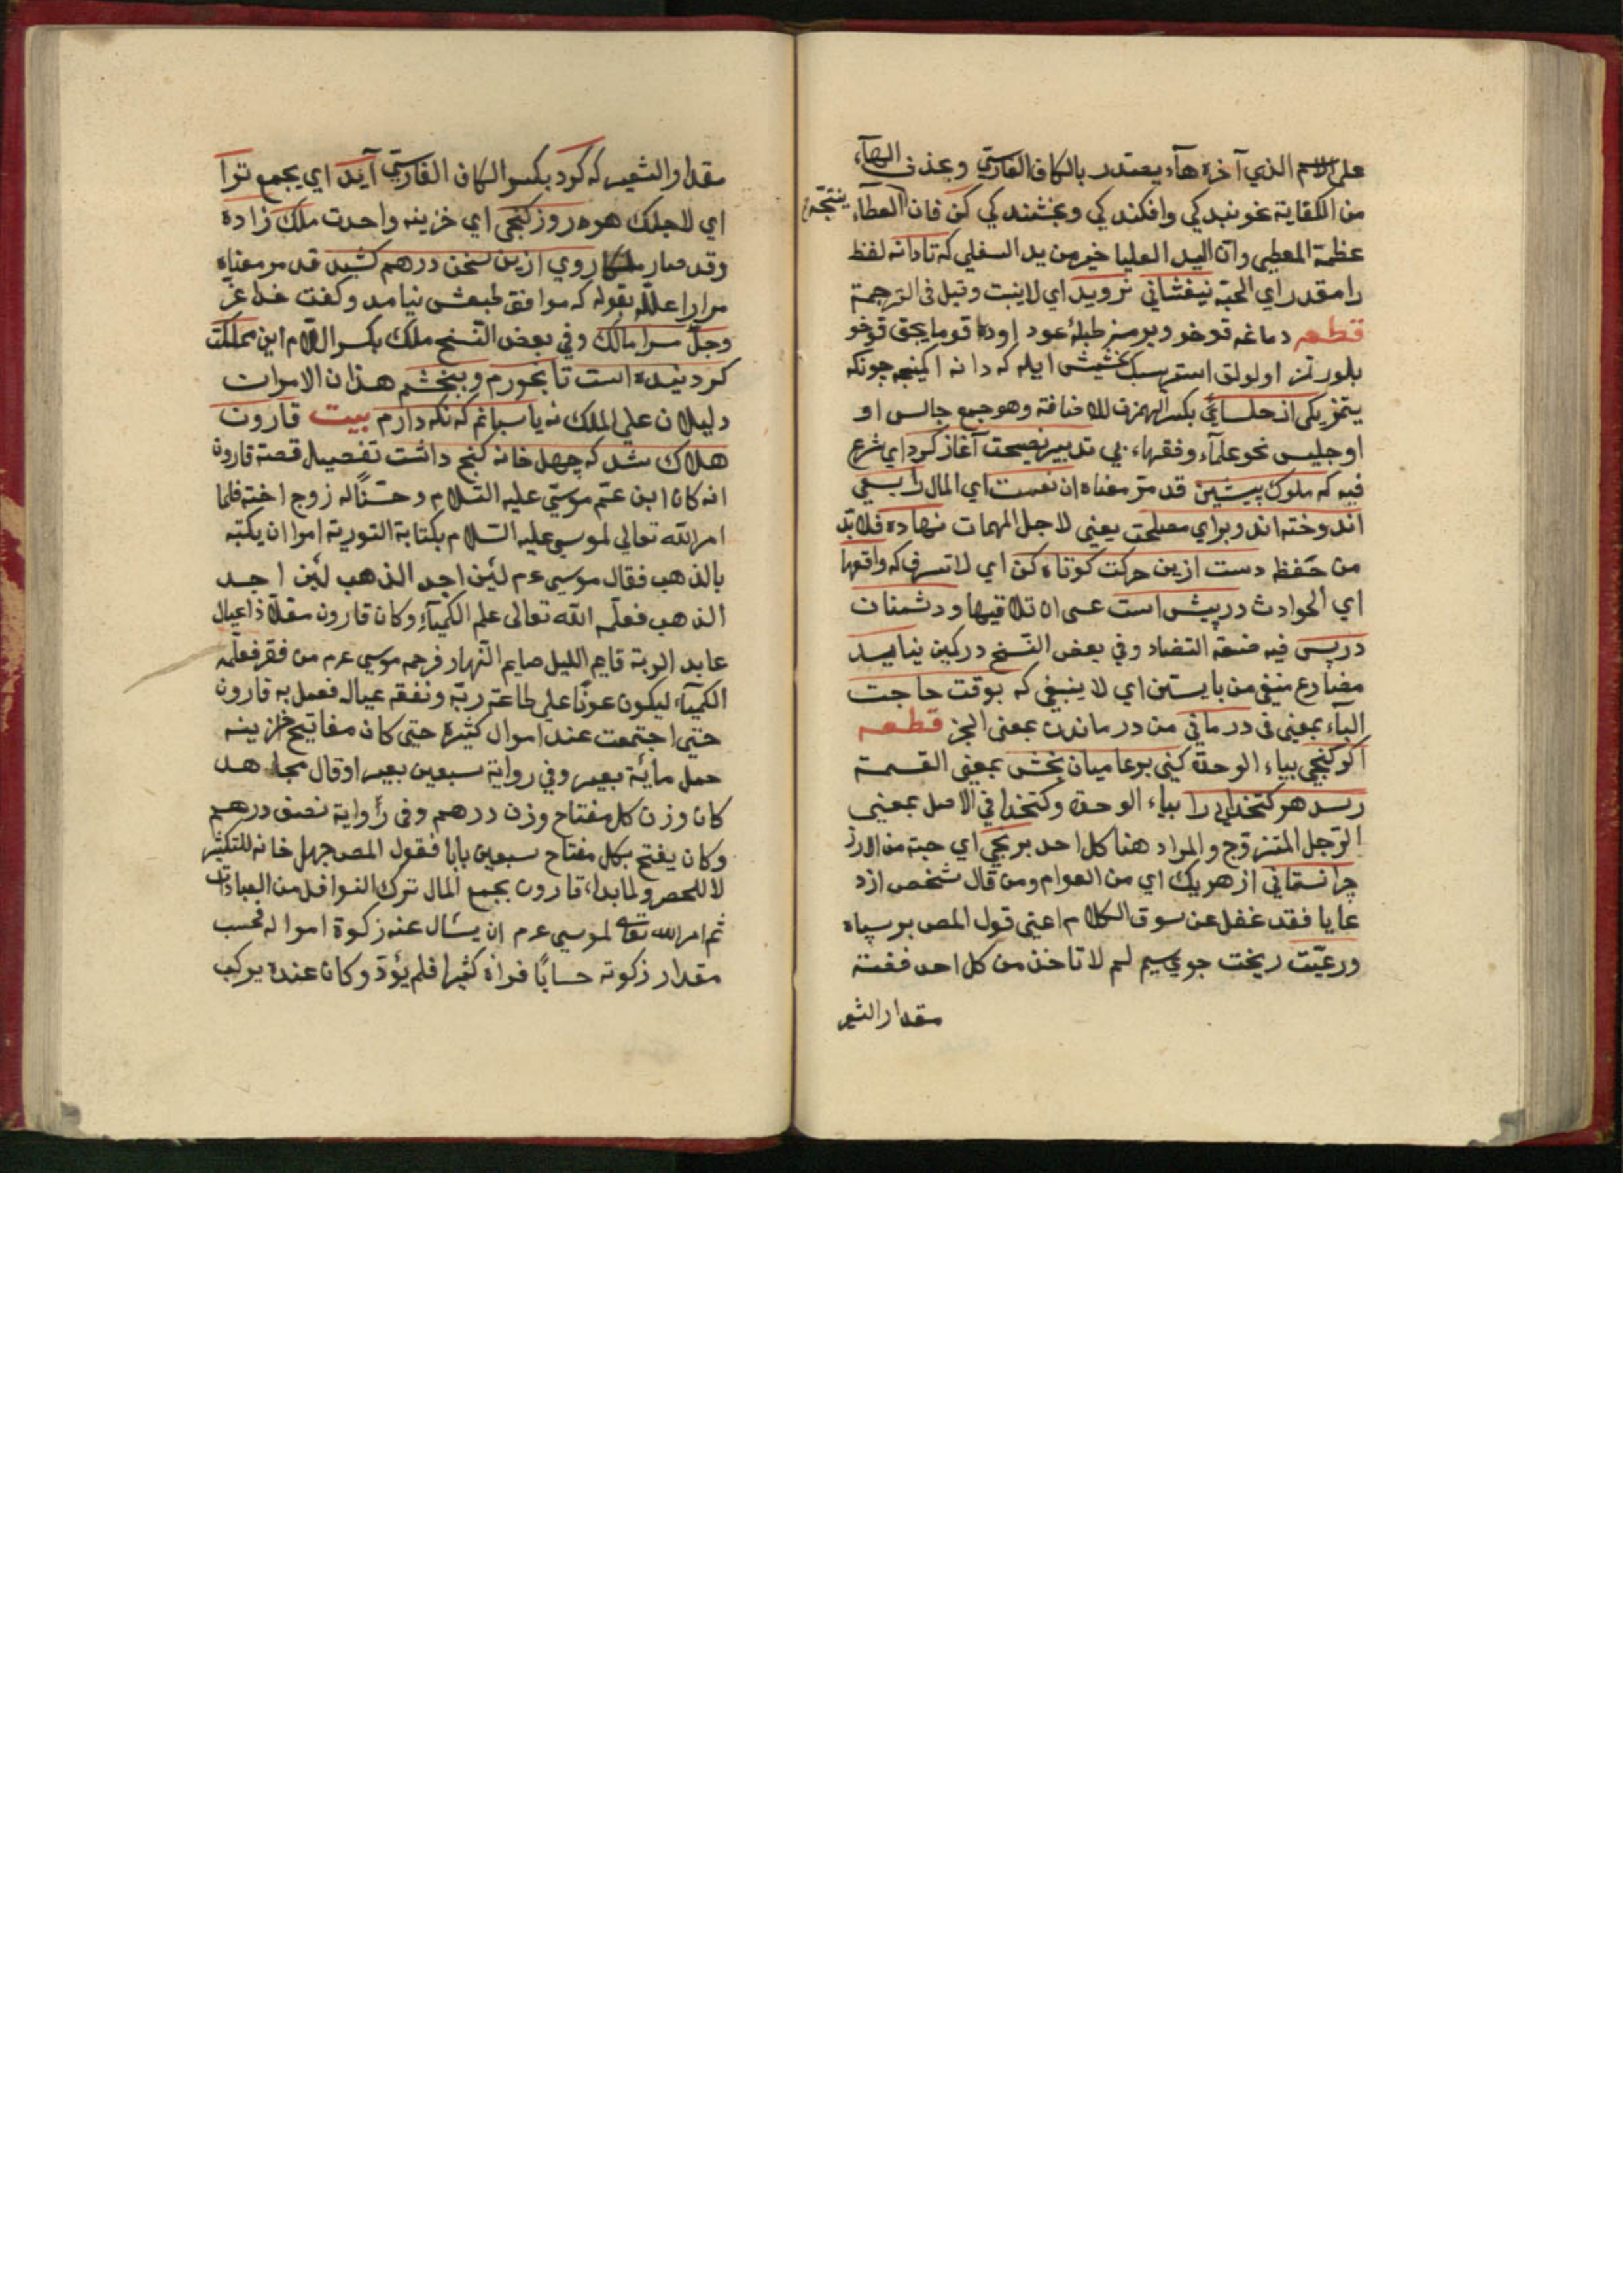 على الاسم الذي آخره هآء يعتدر بالكاف الفارسي وبحذف الهآء
من الكفاية نحو بندكي وافكندكي وبخشندكي كن فان العطآء ينتجه
عظمة المعطي وان اليد العليا خير من يد السفلي كه تا دانه لفظ
را مقدر اي الحبة نيفشاني نرويد اي لا ينبت وقيل في الترجمة
قطعه دماغه قوخو ويرمز طبلۀ عود اوده قوما يجق قوخو
بلورتز اولولق استرسك بخشيش ايله كه دانه اكينجه چونكه
بتمز يكي از جلسائي بكسر الهمزة للاضافة وهو جمع جالس او
او جليس نحو علمآء وفقهاء بي تدبير نصيحت آغاز كرد اي شرع
فيه كه ملوك پيشين قد مر معناه ان نعمت اي المال را بسعي
اندوخته اند وبراي مصلحت يعني لاجل المهمات نهاده فلابد
من حفظ دست ازين حركت كوتاه كن اي لا تسرف كه واقعها
اي الحوادث در پيش است عسى ان تلاقيها ودشمنان
در پس فيه صنعة التضاد وفي بعض النسخ در كمين نبايد
مضارع منفي من بايستن اي لا ينبغي كه بوقت حاجت
البآء بمعنى في درماني من درماندن بمعنى العجز قطعه
اكر كنجي بياء الوحدة كني بر عاميان بخش بمعنى القسمة
رسد هر كتخدايي را بياء الوحدة وكتخدا في الاصل بمعنى
الرجل المتزوج والمراد هنا كل احد برنجي اي حبة من الارز
چرا نستاني از هر يك اي من العوام ومن قال شخص از د
عايا فقد غفل عن سوق الكلام اعني قول المص بر سپاه
ورعيت ريخت جوي سيم لم لا تاخذ من كل احد فضة
مقدار الشعير
مقدار الشعير كه كرد بكسر الكاف الفارسي آيد اي يجمع ترا
اي لاجلك هر روز كنجي اي خزينه واحدة ملك زاده
وقد صار ملكا روي ازين سخن درهم كشيد قد مر معناه
مرارا علله بقوله كه موافق طبعش نيامد وكفت خداي عز
وجل مرا مالك وفي بعض النسخ ملك بكسر اللام اين مملكت
كردنيده است تا بخورم وببخشم هذان الامران
دليلان على الملك نه پاسبانم كه نكه دارم بيت قارون
هلاك شد كه چهل خانه كنج داشت تفصيل قصة قارون
انه كان ابن عم موسى عليه السلام وختنا له زوج اخته فلما
امر الله تعالى لموسى عليه السلام بكتابة التورية امر ان يكتبه
بالذهب فقال موسى عم لئن اجد الذهب لئن اجد
الذهب فعلم الله تعالى علم الكيمياء وكان قارون مقلا ذا عيال
عابد الربه قايم الليل صايم النهار فرحمه موسى عم من فقر فعلمه
الكيمياء ليكون عونا على طاعة ربه ونفقه عياله فعمل به قارون
حتى اجتمعت عنده اموال كثيرة حتى كان مفاتيح خزينه
حمل مائة بعير وفي رواية سبعين بعيرا وقال مجاهد
كان وزن كل مفتاح وزن درهم وفي رواية نصف درهم
وكان يفتح بكل مفتاح سبعين بابا فقول المص چهل خانه للتكثير
لا للحصر ولما بداء قارون بجمع المال ترك النوافل من العبادات
ثم امر الله تعالى لموسى عم ان يسأل عنه زكوة امواله فحسب
مقدار زكوته حسابا فراه كثيرا فلم يؤد وكان عنده يركب